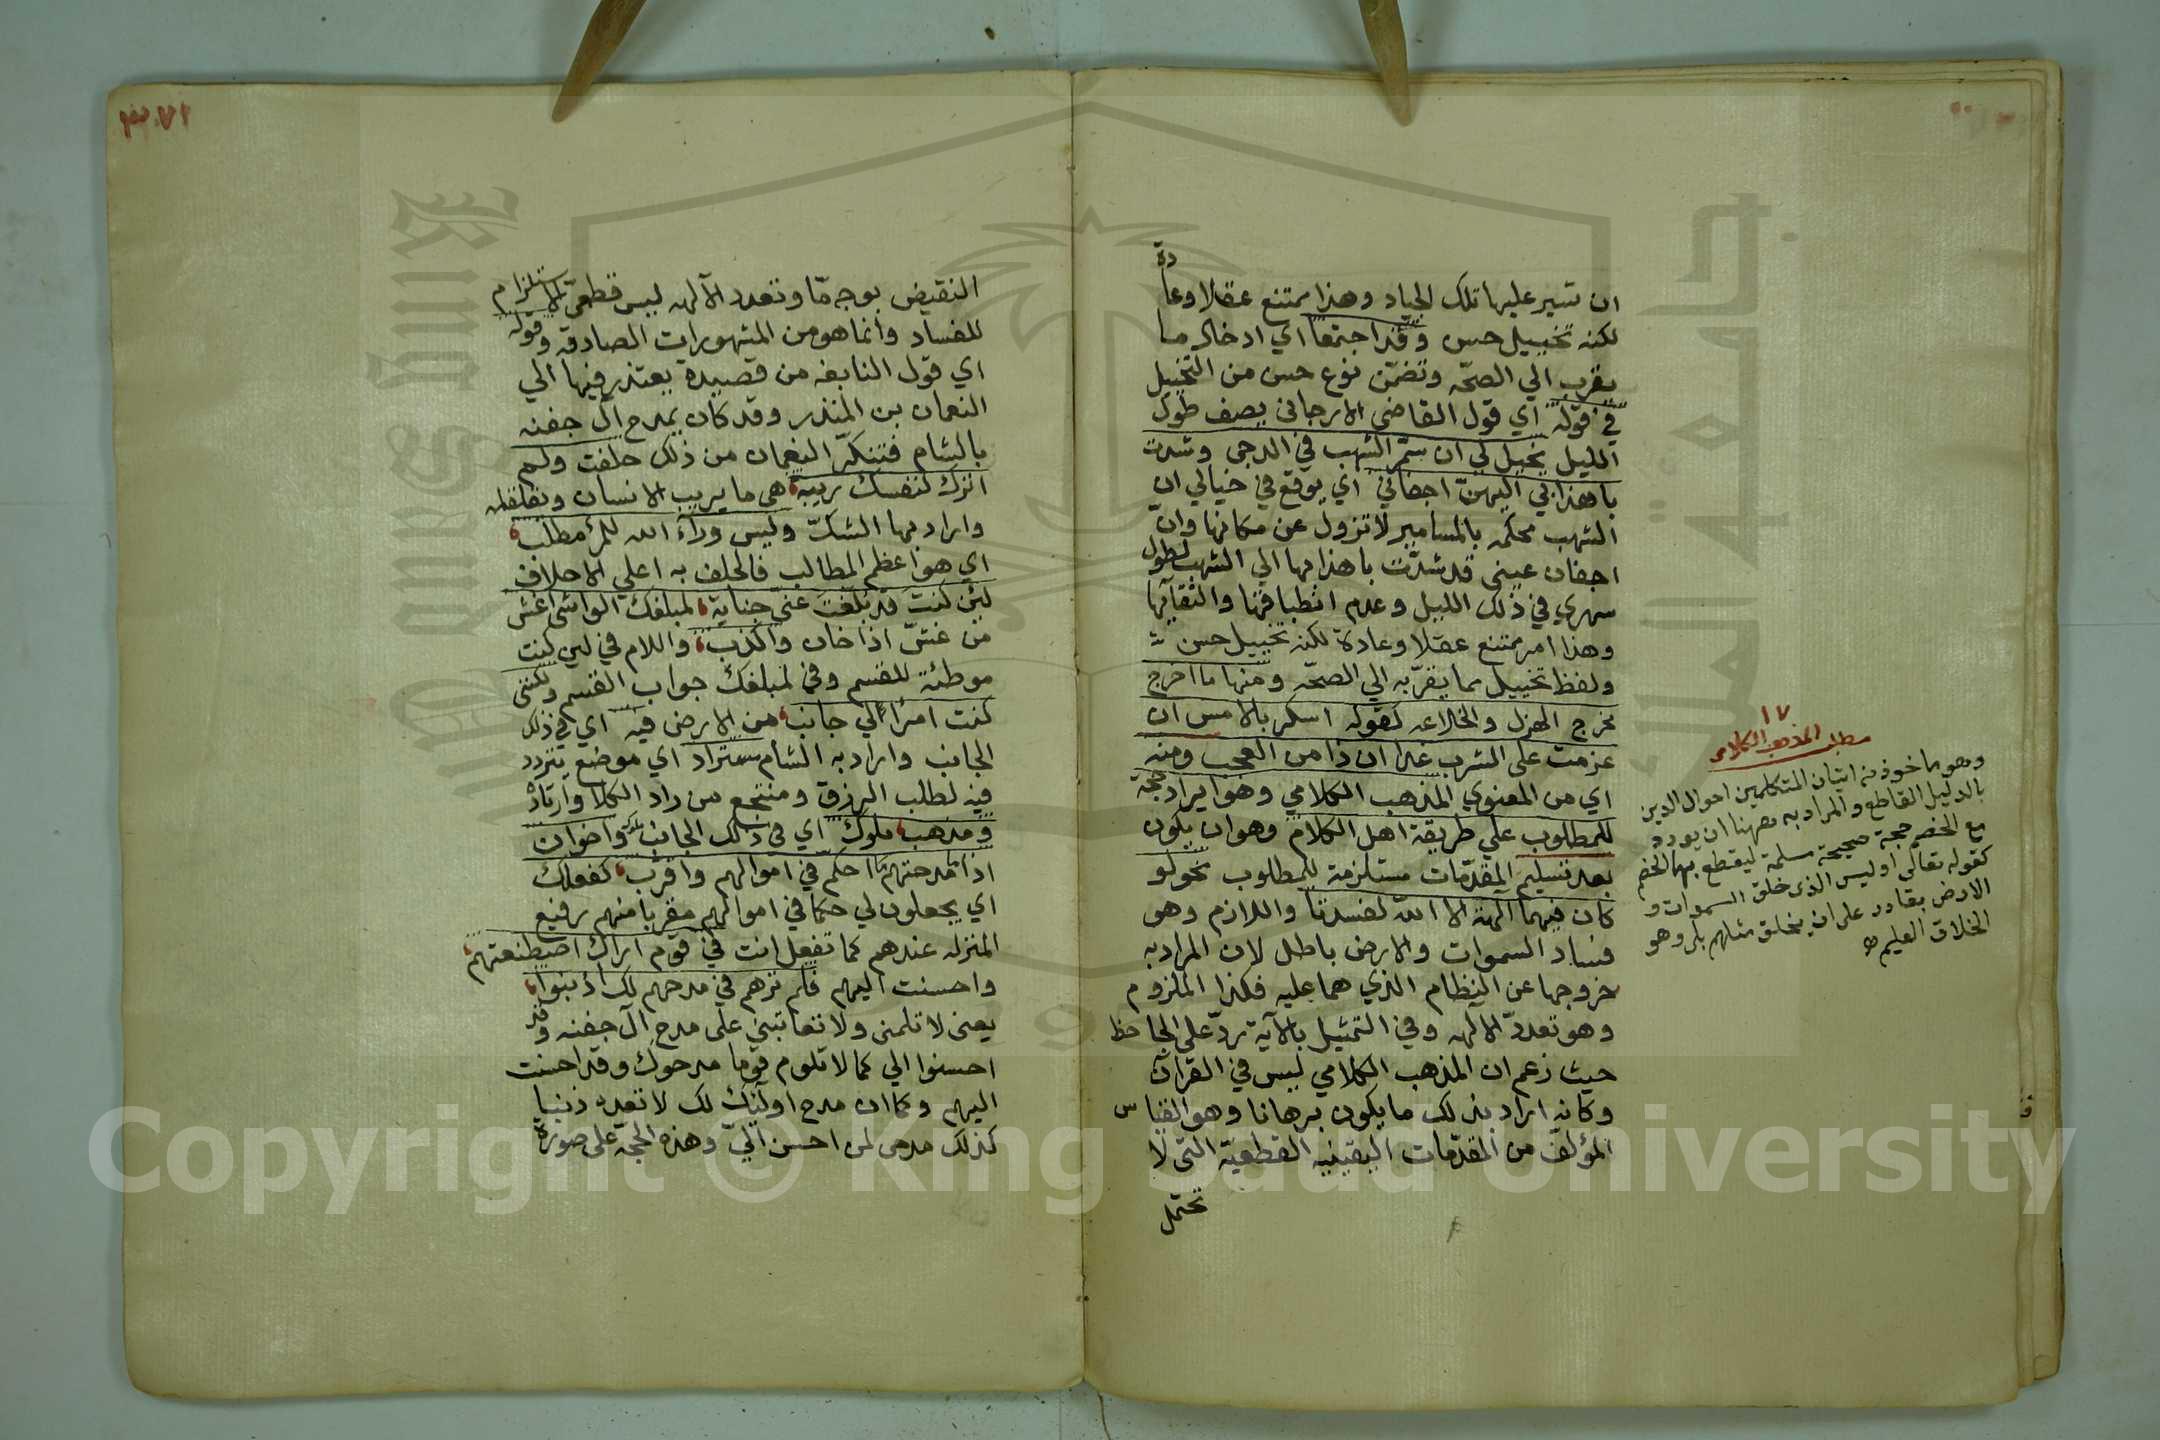 ان تسير عليها تلك الجياد وهذا ممتنع عقلا وعادة
لكنه تخييل حسن وقد اجتمعا اي ادخال ما
يقرب الي الصحّه وتضمّن نوع حسن من التخييل
في قوله اي قول القاضي الارجاني يصف طول
الليل يخيل لي ان سمّر الشهب في الدجى وشدت
باهدابي اليهنّ اجفاني اي يوقع في خيالي ان
الشهب محكمه بالمسامير لا تزول عن مكانها وانّ
اجفان عيني قد شدّت باهدابها الي الشهب لطول
سهري في ذلك الليل وعدم انطباقها والتقائها
وهذا امر ممتنع عقلا وعادة لكنه تخييل حسن
ولفظ تخييل مما يقرّبه الي الصحّه ومنها ما اخرج
مخرج الهزل والخلاعه كقوله اسكر بالامس ان
عزمت على الشرب غدا ان ذا من العجب ومنه
اي من المعنوي المذهب الكلامي وهو ايراد حجة
للمطلوب علي طريقة اهل الكلام وهو ان يكون
بعد تسليم المقدّمات مستلزمة للمطلوب نحو لو
كان فيهما آلهة الا الله لفسدتا واللازم وهو
فساد السموات والارض باطل لان المراد به
خروجها عن النظام الذي هما عليه فكذا الملزوم
وهو تعددّ الالهه وفي التمثيل بالآية ردّ على الجاحظ
حيث زعم ان المذهب الكلامي ليس في القرآن
وكانه اراد بذلك ما يكون برهانا وهو القياس
المؤلف من المقدّمات اليقينيه القطعيّة التي لا
تحتمل
١٧
مطلب المذهب الكلامي
وهو ماخوذ من اتيان المتكلمين احوال الدين
بالدليل القاطع والمراد به ههنا ان يورد
مع الخصم حجة صحيحة مسلمة ليقطع بها الخصم
كقوله تعالى اوليس الذي خلق السموات و
الارض بقادر على ان يخلق مثلهم بلى وهو
الخلاق العليم
النقيض بوجه مّا وتعدد الآلهه ليس قطعيّ الاستلزام
للفساد وانما هو من المشهورات الصادقه وقوله
اي قول النابغه من قصيدة يعتذر فيها الي
النعمان بن المنذر وقد كان يمدح آل جفنه
بالشام فتنكرّ النعمان من ذلك حلفت ولم
اترك لنفسك ريبة هي ما يريب الانسان ويقلقله
واراد بها الشكّ وليس ورآء الله للمرء مطلب
اي هو اعظم المطالب فالحلف به اعلي الاحلاف
لئن كنت قد بلغت عني جناية لمبلغك الواشي اغش
من غشّ اذا خان واكذب واللام في لين كنت
موطئة للقسم وفي لمبلغك جواب القسم ولكنني
كنت امرأ لي جانب من الارض فيه اي في ذلك
الجانب واراد به الشام مستراد اي موضع يتردد
فيه لطلب الرزق ومنتجع من راد الكلا وارتاد
ومذهب ملوك اي في ذلك الجانب ملوك واخوان
اذا ما مدحتهم احكم في اموالهم واقرّب كفعلك
اي يجعلون لي حكما في اموالهم مقربا منهم رفيع
المنزله عندهم كما تفعل انت في قوم اراك اصطنعتهم
واحسنت اليهم فلم ترهم في مدحهم لك اذنبوا
يعني لا تلمني ولا تعاتبني على مدح آل جفنه وقد
احسنوا الي كما لا تلوم قوما مدحوك وقد احسنت
اليهم وكما ان مدح اولئك لك لا تعده ذنبا
كذلك مدحي لمن احسن اليّ وهذه الحجّة على صورة
Copyright © King Saud University